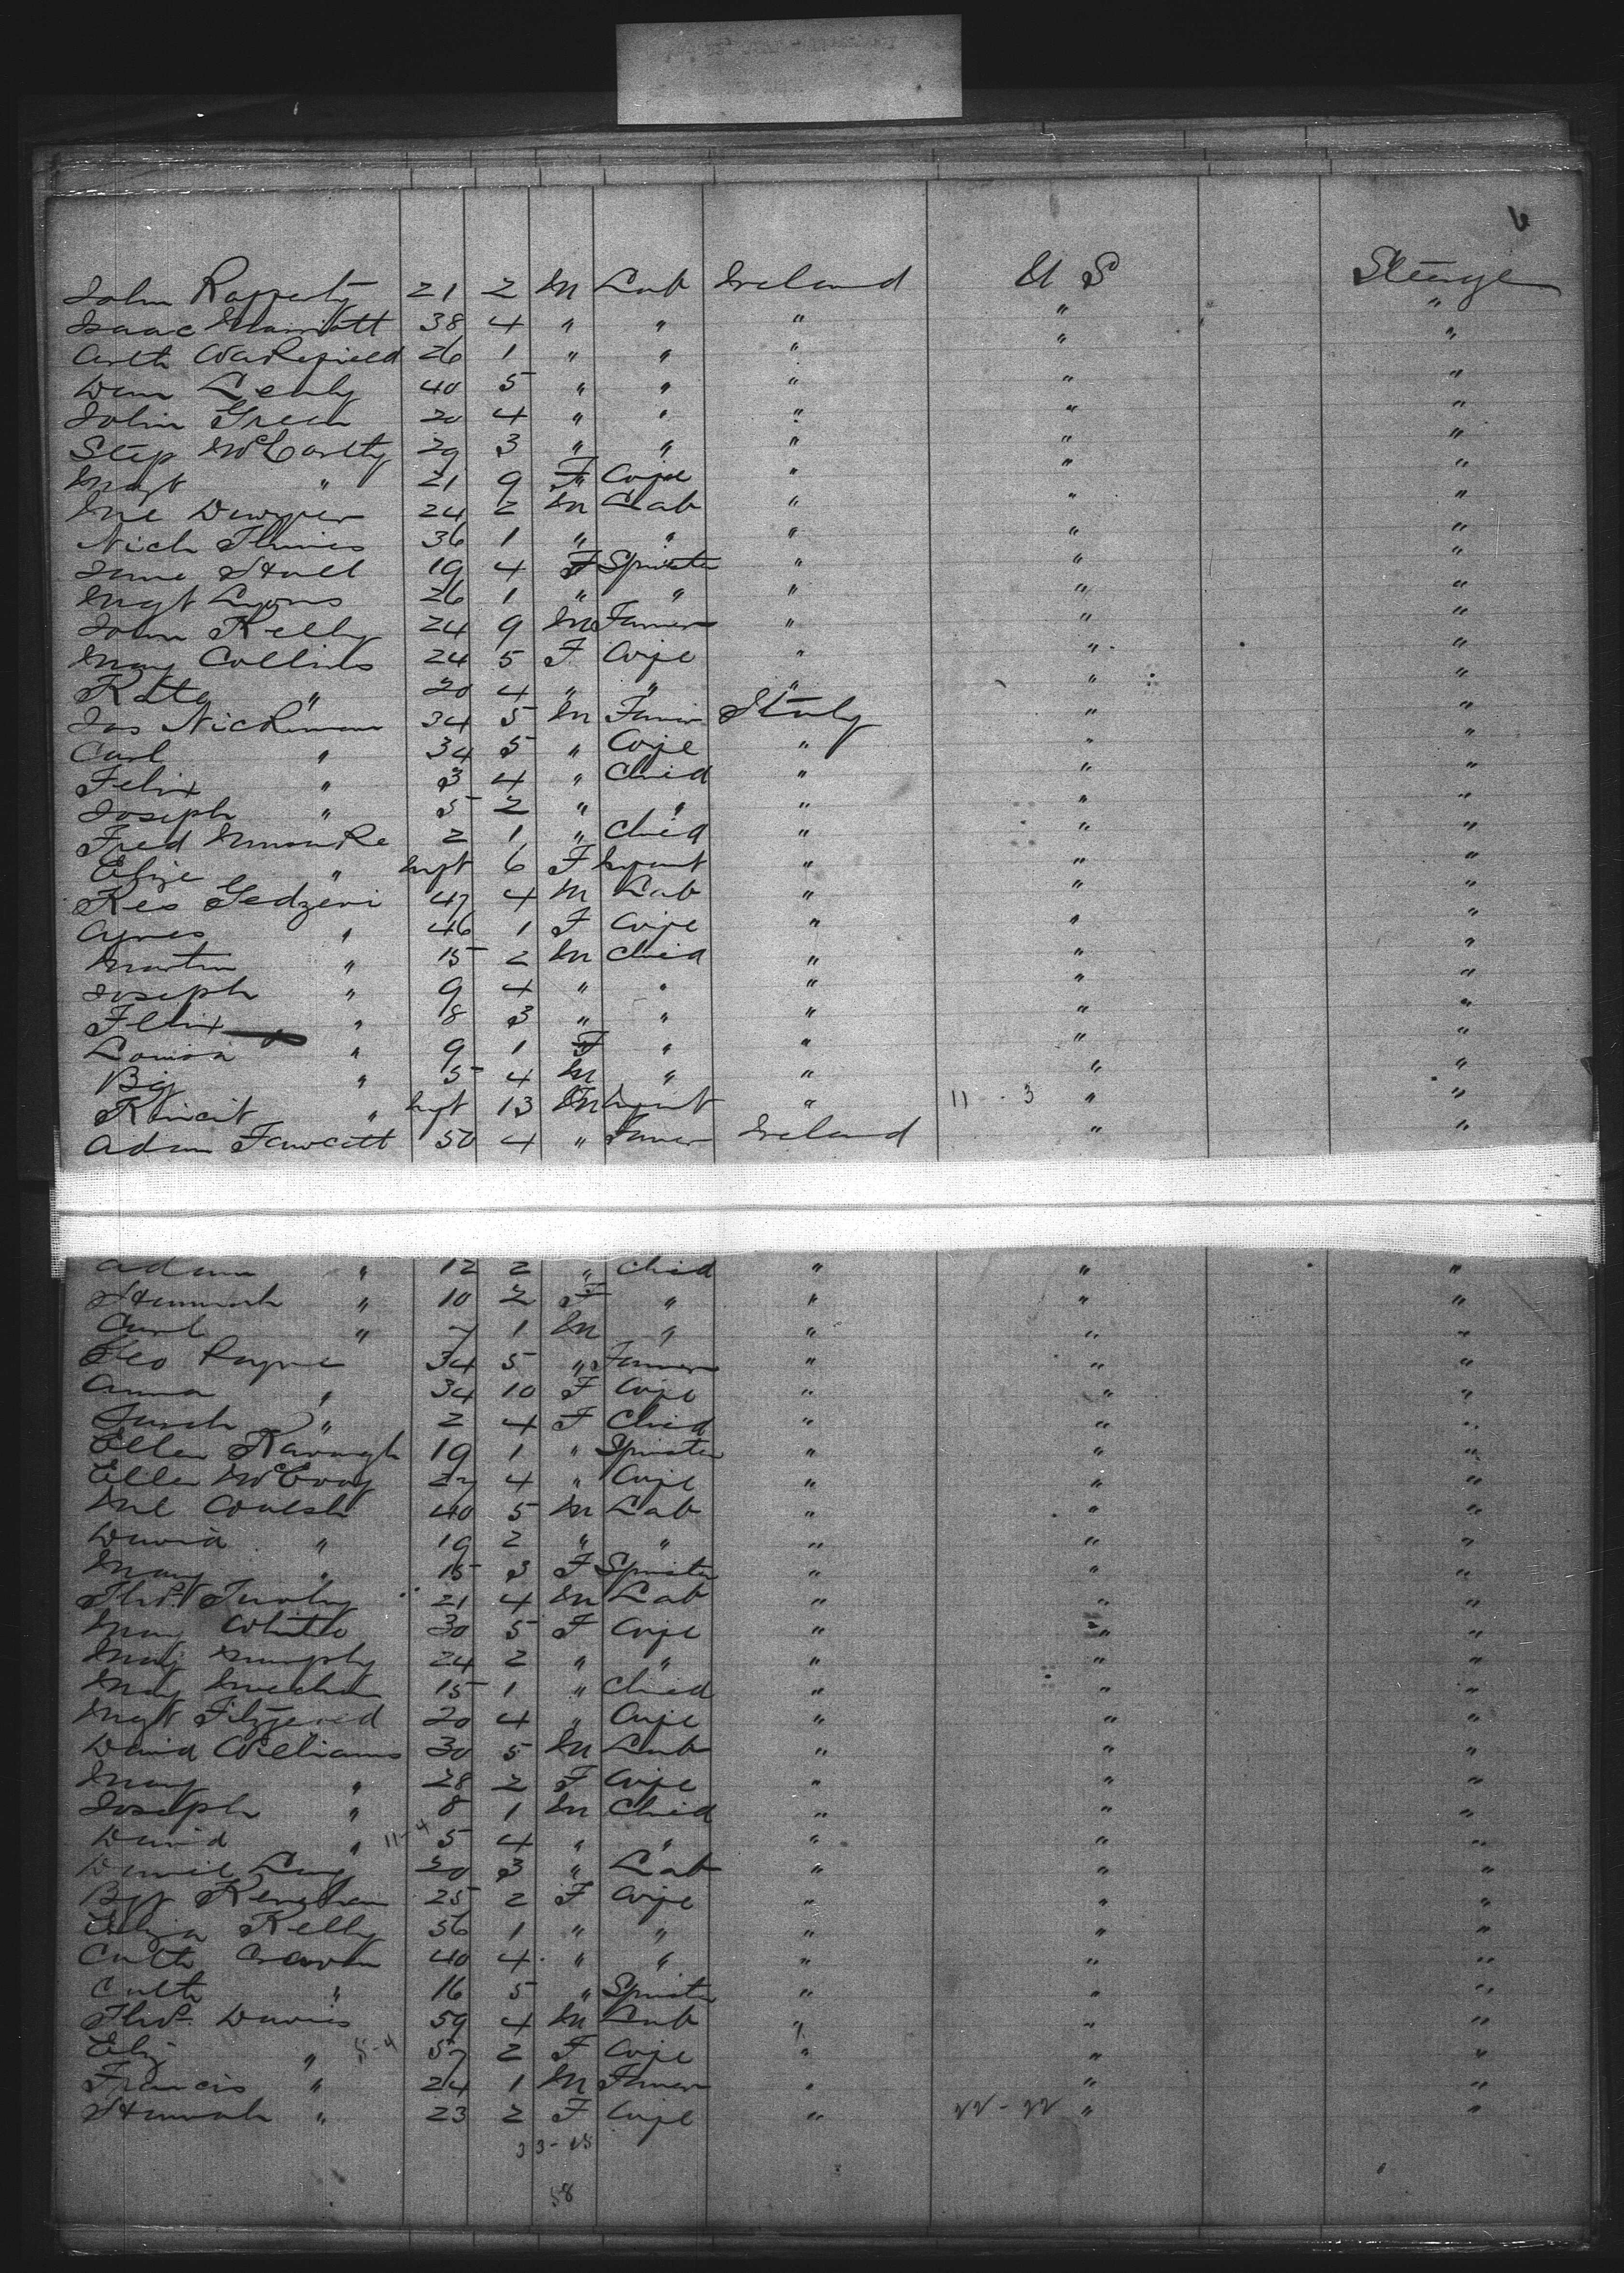 6
John Rafferty 21 2 M Lab Ireland U S Steerage
Isaac Marriott 38 4 " " " " "
Arth Wakefield 26 1 " " " " "
Dan Leahy 40 5 " " " " "
John Green 20 4 " " " " "
Step McCarthy 29 3 " " " " "
Mgt " 21 9 F Wife " " "
Ml Dwyer 24 2 M Lab " " "
Nich 36 1 " " " " "
Jane Hall 19 4 F Spinster " " "
Mgt Lyons 26 1 " " " " "
John Kelly 24 9 M Farmer " " "
Mary Collins 24 5 F Wife " " "
Kate " 20 4 " " " " "
Jas 34 5 M Farmer Italy " "
Carl " 34 5 " Wife " " "
Felix " 3 4 " Child " " "
Joseph " 5 2 " " " " "
Fred 2 1 " Child " " "
Elize " Inft 6 F Infant " " "
47 4 M Lab " " "
Agnes " 46 1 F Wife " " "
Martin " 15 2 M Child " " "
Joseph " 9 4 " " " " "
Felix " 8 3 " " " " "
Louisa " 9 1 F " " " "
" 5 4 M " " " "
" Inft 13 M Infant " 11 - 3 " "
Adam Fawcett 50 4 " Farmer Ireland " "
Adam " 12 2 " Child " " "
Hannah " 10 2 F " " " "
Carl " 7 1 M " " " "
Geo Payne 34 5 " Farmer " " "
Anna " 34 10 F Wife " " "
Sarah " 2 4 F Child " " "
Ellen Kavnagh 19 1 " Spinster " " "
Ellen McEvoy 27 4 " Wife " " "
Ml Walsh 40 5 M Lab " " "
David " 19 2 " " " " "
Mary " 15 3 F Spinster " " "
Thos 21 4 M Lab " " "
Mary White 30 5 F Wife " " "
Mary Murphy 24 2 " " " " "
Mary Meehan 15 1 " Child " " "
Mgt Fitzgerald 20 4 " Wife " " "
David Williams 30 5 M Lab " " "
Mary " 28 2 F Wife " " "
Joseph " 8 1 M Child " " "
David " 11-4 5 4 " " " " "
Daniel 20 3 " Lab " " "
Bgt 25 2 F Wife " " "
Eliza Kelly 56 1 " " " " "
Cath 40 4 " " " " "
Cath " 16 5 " Spinster " " "
Thos Davies 59 4 M Lab " " "
Eliz " 57 2 F Wife " " "
Francis " 24 1 M Farmer " " "
Hannah " 23 2 F Wife " 22-22 " "
58